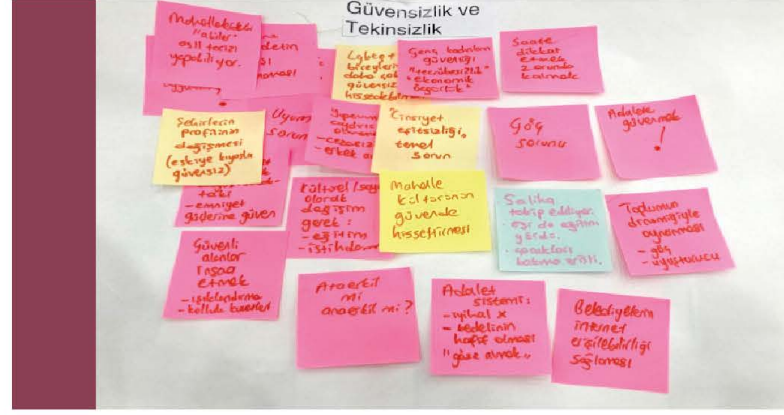 Güvensizlik ve
Tekinsizlik
Mahalledeki
"abiler"
asıl tacizi
yapabiliyor.
Lgbtq+
bireylerin
daha çok
güvensiz
hissedebilmesi
Genç kadınların
güvenliği
"tecrübesizlik"
"ekonomik
Saate
dikkat
etmek
zorunda
kalmak
Şehirlerin
profilinin
değişmesi
(eskiye kıyasla
güvensiz)
Uyum
sorun
Cinsiyet
eşitsizliği,
temel
sorun
Göç
sorunu
Adalete
güvenmek
!
- emniyet
güçlerine güven
Kültürel
olarak
değişim
gerek:
- eğitim
- istihdam
Mahalle
kültürünün
güvende
hissettirmesi
Saliha
takip ediliyor.
- eşi de eğitim
çocukları
Toplumun
dinamiğiyle
oynanması
- göç
- uyuşturucu
Güvenli
alanlar
inşaa
etmek
- ışıklandırma
- kolluk kuvvetleri
Ataerkil
mi
anaerkil mi?
Adalet
sistemi:
- iyihal x
- bedelinin
hafif olması
"göze almak"
Belediyelerin
internet
erişilebilirliği
sağlaması